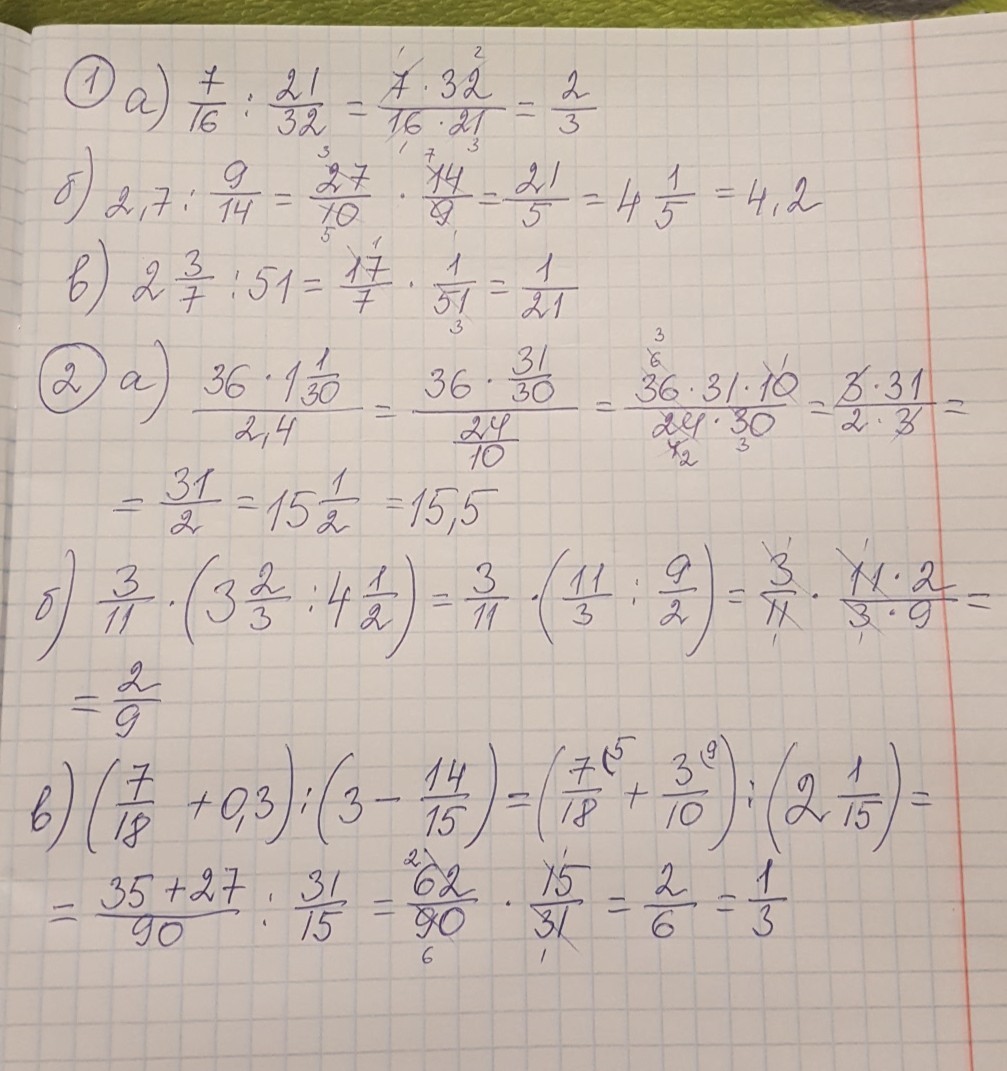 1 а) 7/16 : 21/32 = 7 · 32 / 16 · 21 = 2/3
б) 2,7 : 9/14 = 27/10 · 14/9 = 21/5 = 4 1/5 = 4,2
в) 2 3/7 : 51 = 17/7 · 1/51 = 1/21
2 а) 36 · 1 1/30 / 2,4 = 36 · 31/30 / 24/10 = 36 · 31 · 10 / 24 · 30 = 3 · 31 / 2 · 3 =
= 31/2 = 15 1/2 = 15,5
б) 3/11 · (3 2/3 : 4 1/2) = 3/11 · (11/3 : 9/2) = 3/11 · 11 · 2 / 3 · 9 =
= 2/9
в) (7/18 + 0,3) : (3 − 14/15) = (7(5/18 + 3(9/10) : (2 1/15) =
= 35 + 27 / 90 : 31/15 = 62/90 · 15/31 = 2/6 = 1/3